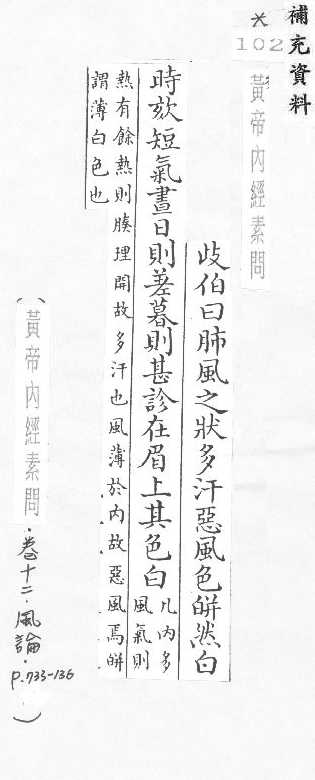 補充資料
※
102
黃帝內經素問
歧伯曰肺風之狀多汗惡風色皏然白
時欬短氣晝日則差暮則甚診在眉上其色白
凡內多
風氣則
熱有餘熱則腠理開故多汗也風薄於內故惡風焉皏
謂薄白色也
(黃帝內經素問·卷十二·風論·
P.133-136)